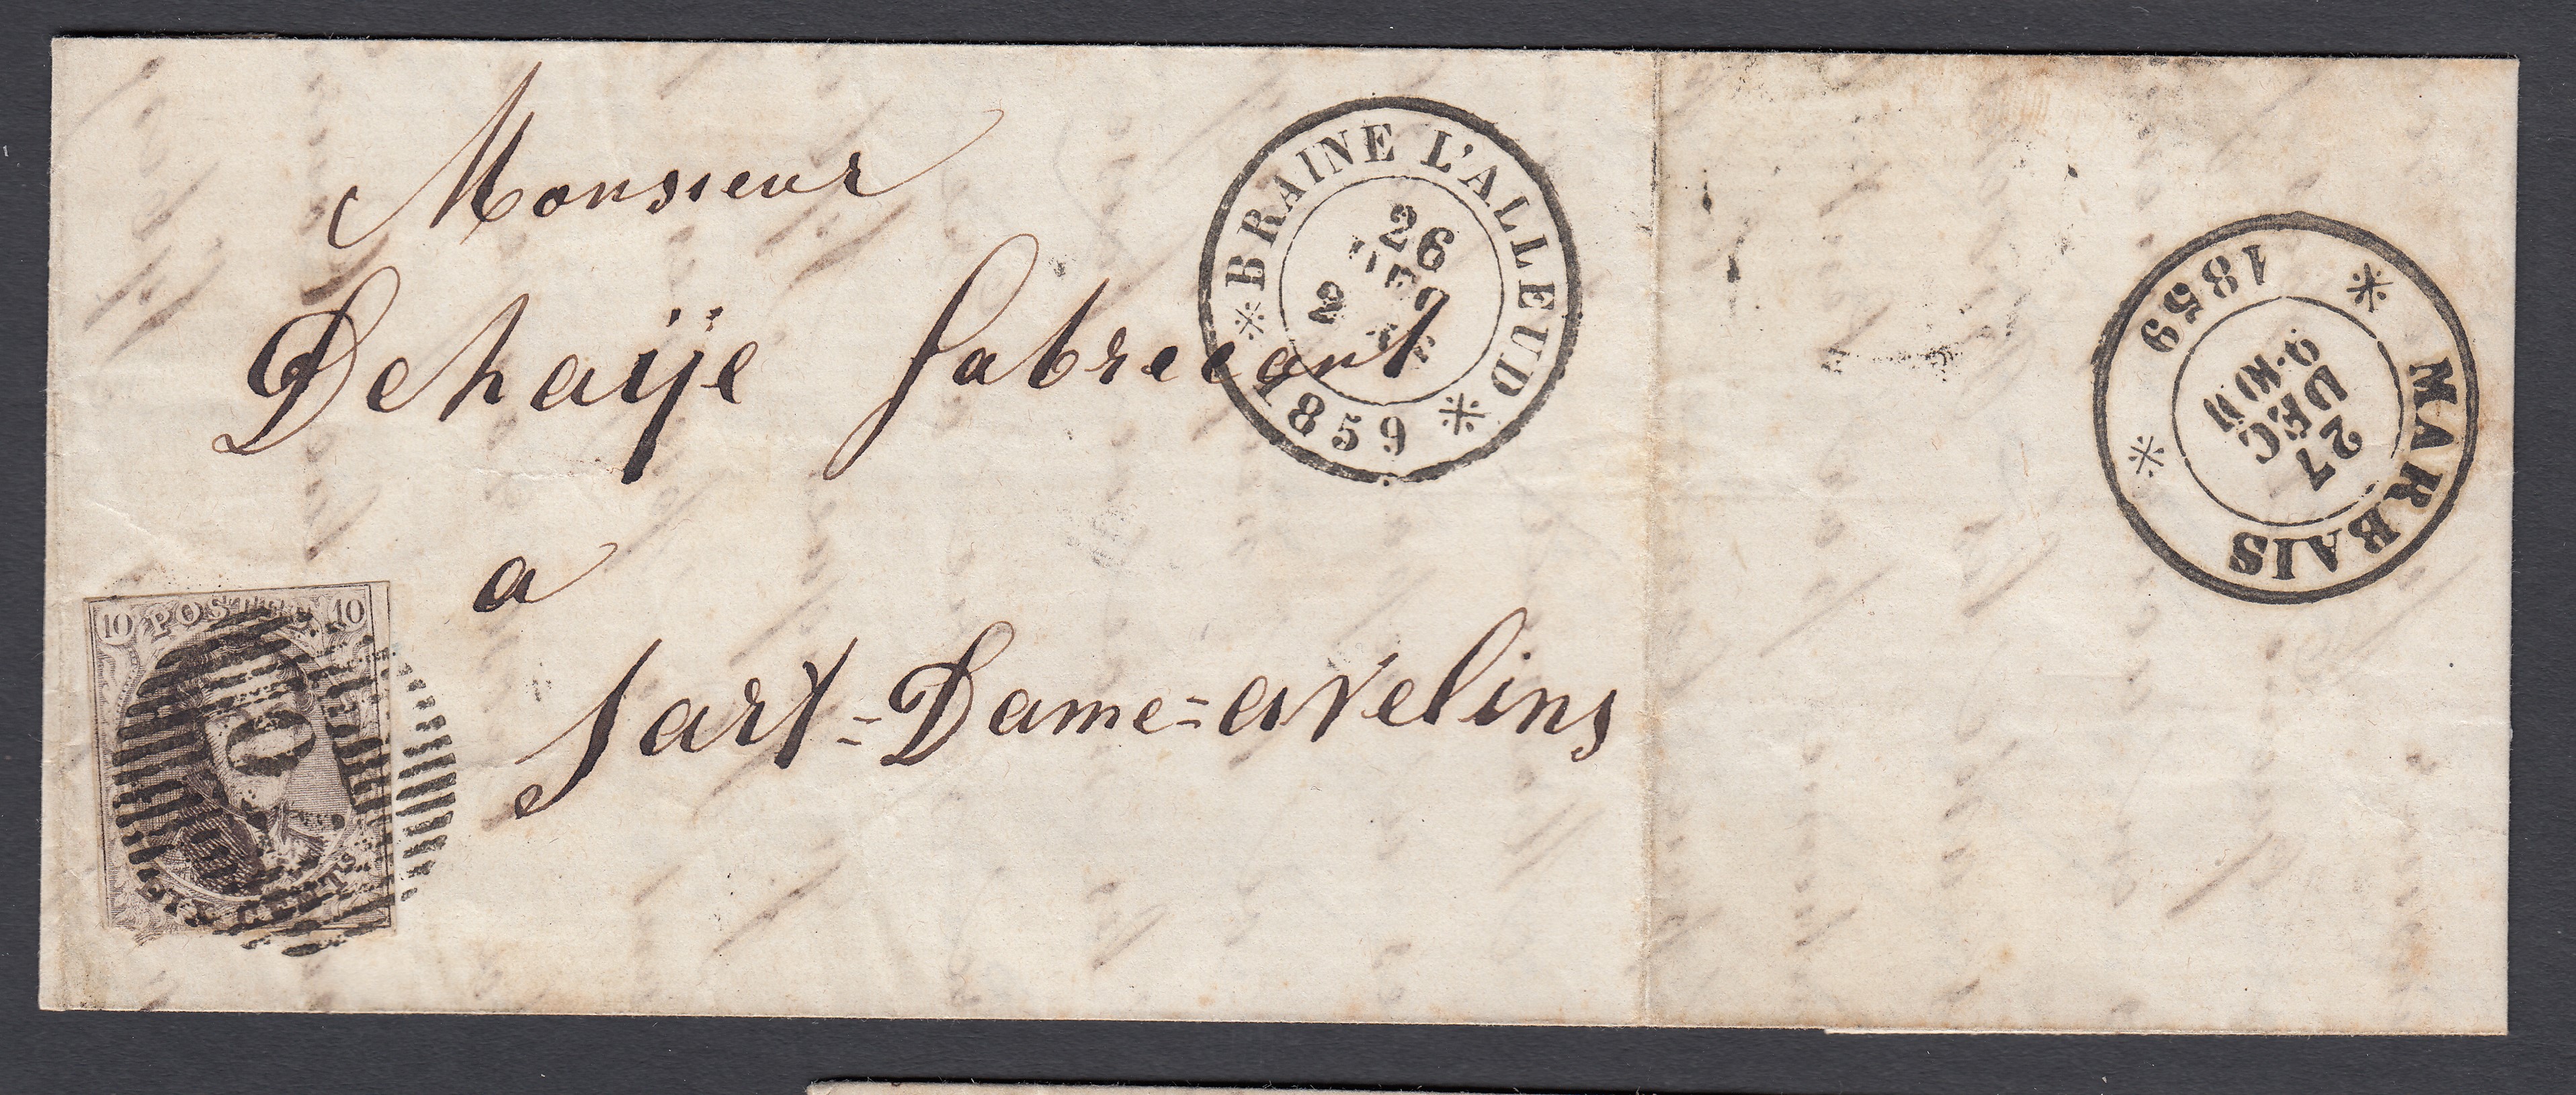 Monsieur
Dehaÿe fabrecant
a
Sart=Dame=avelins
BRAINE L'ALLEUD
26
1859
MARBAIS
27
DEC
1859
10 POSTES 10